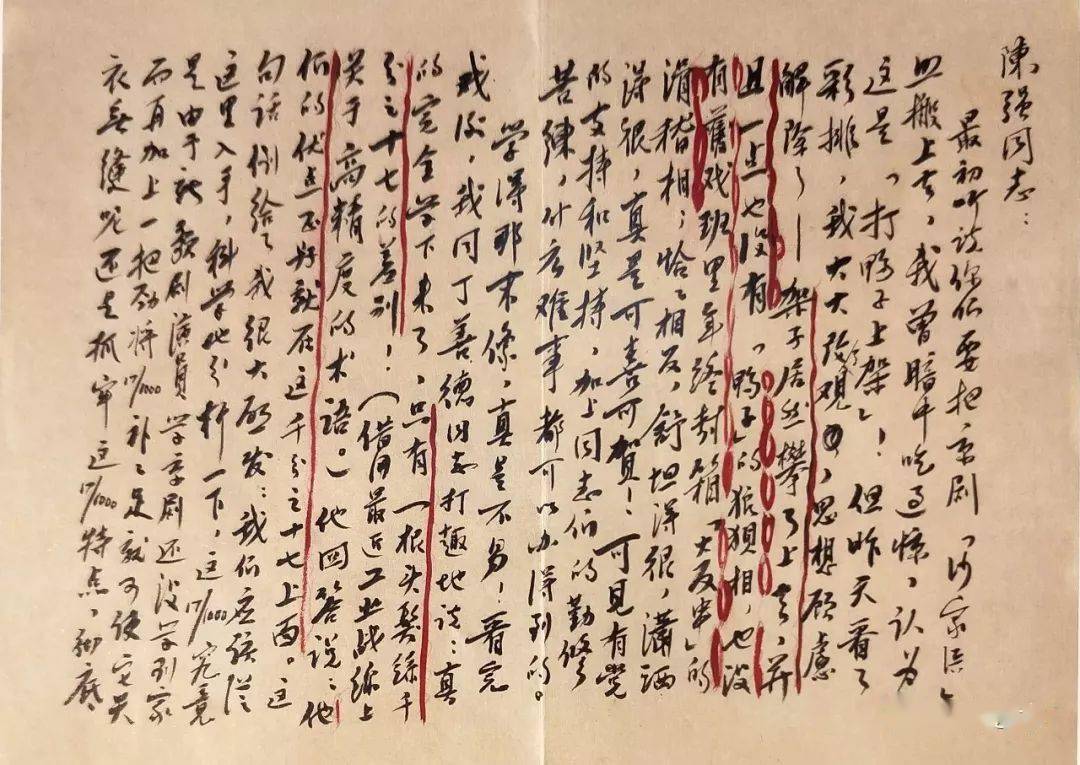 陳强同志：
最初听说你们要把京剧「沙家浜」
照搬上去，我曾暗中吃过惊，认为
这是「打鸭子上架」！但昨天看了
彩排，我大大改观，思想顾虑
解除了——架子居然攀了上去，并
且一点也没有「鸭子」的狼狈相，也没
有舊戏班里年终封箱「大反串」的
滑稽相；恰恰相反，舒坦得很，瀟洒
得很，真是可喜可贺！可见有党
的支持和坚持，加上同志们的勤修
苦練，什么难事都可以办得到的。
学得那末像，真是不易！看完
戏后，我同丁善德同志打趣地说：真
的完全学下来了，只有「一根头髮絲千
分之十七的差别」！（借用最近工业战線上
关于高精度的术语。）他回答说：他
们的优点正好就在这千分之十七上面。这
句话倒给了我很大启发：我们应该从
这里入手，科学地分析一下，这17/1000究竟
是由于歌剧演員学京剧还没学到家
而再加上一把劲将17/1000补补足就可使它天
衣无縫呢还是抓牢这17/1000特点，彻底